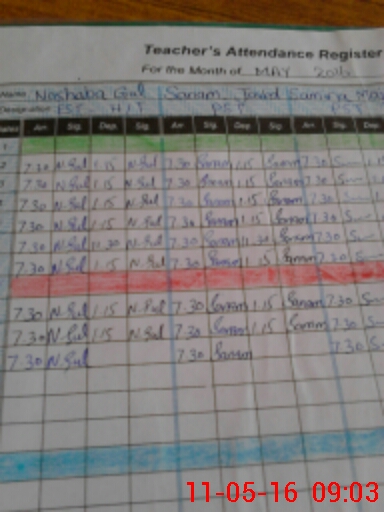 Teacher's Attendance Register
For the Month of MAY 2016
Name Noshaba Gul Sanam Javed Samina
Designation PST H/T PST PST
Arr. Sig. Dep. Sig. Arr Sig. Dep Sig. Arr. Sig. De
1
2 7.30 N.Gul 1.15 N.Gul 7.30 Sanam 1.15 Sanam 7.30
7.30 N.Gul 1.15 N.Gul 7.30 Sanam 1.15 Sanam 7.30
7.30 N.Gul 1.15 N.Gul 7.30 Sanam 1.15 Sanam 7.30
7.30 N.Gul 1.15 N.Gul 7.30 Sanam 1.15 Sanam 7.30
7.30 N.Gul 11.30 N.Gul 7.30 Sanam 11.30 Sanam 7.30
7.30 N.Gul 1.15 N.Gul 7.30 Sanam 1.15 Sanam 7.30
7.30 N.Gul 1.15 N.Gul 7.30 Sanam 1.15 Sanam 7.30
7.30 N.Gul 1.15 N.Gul 7.30 Sanam 1.15 Sanam 7.30
7.30 N.Gul 7.30 Sanam 7.30
11-05-16 09:03